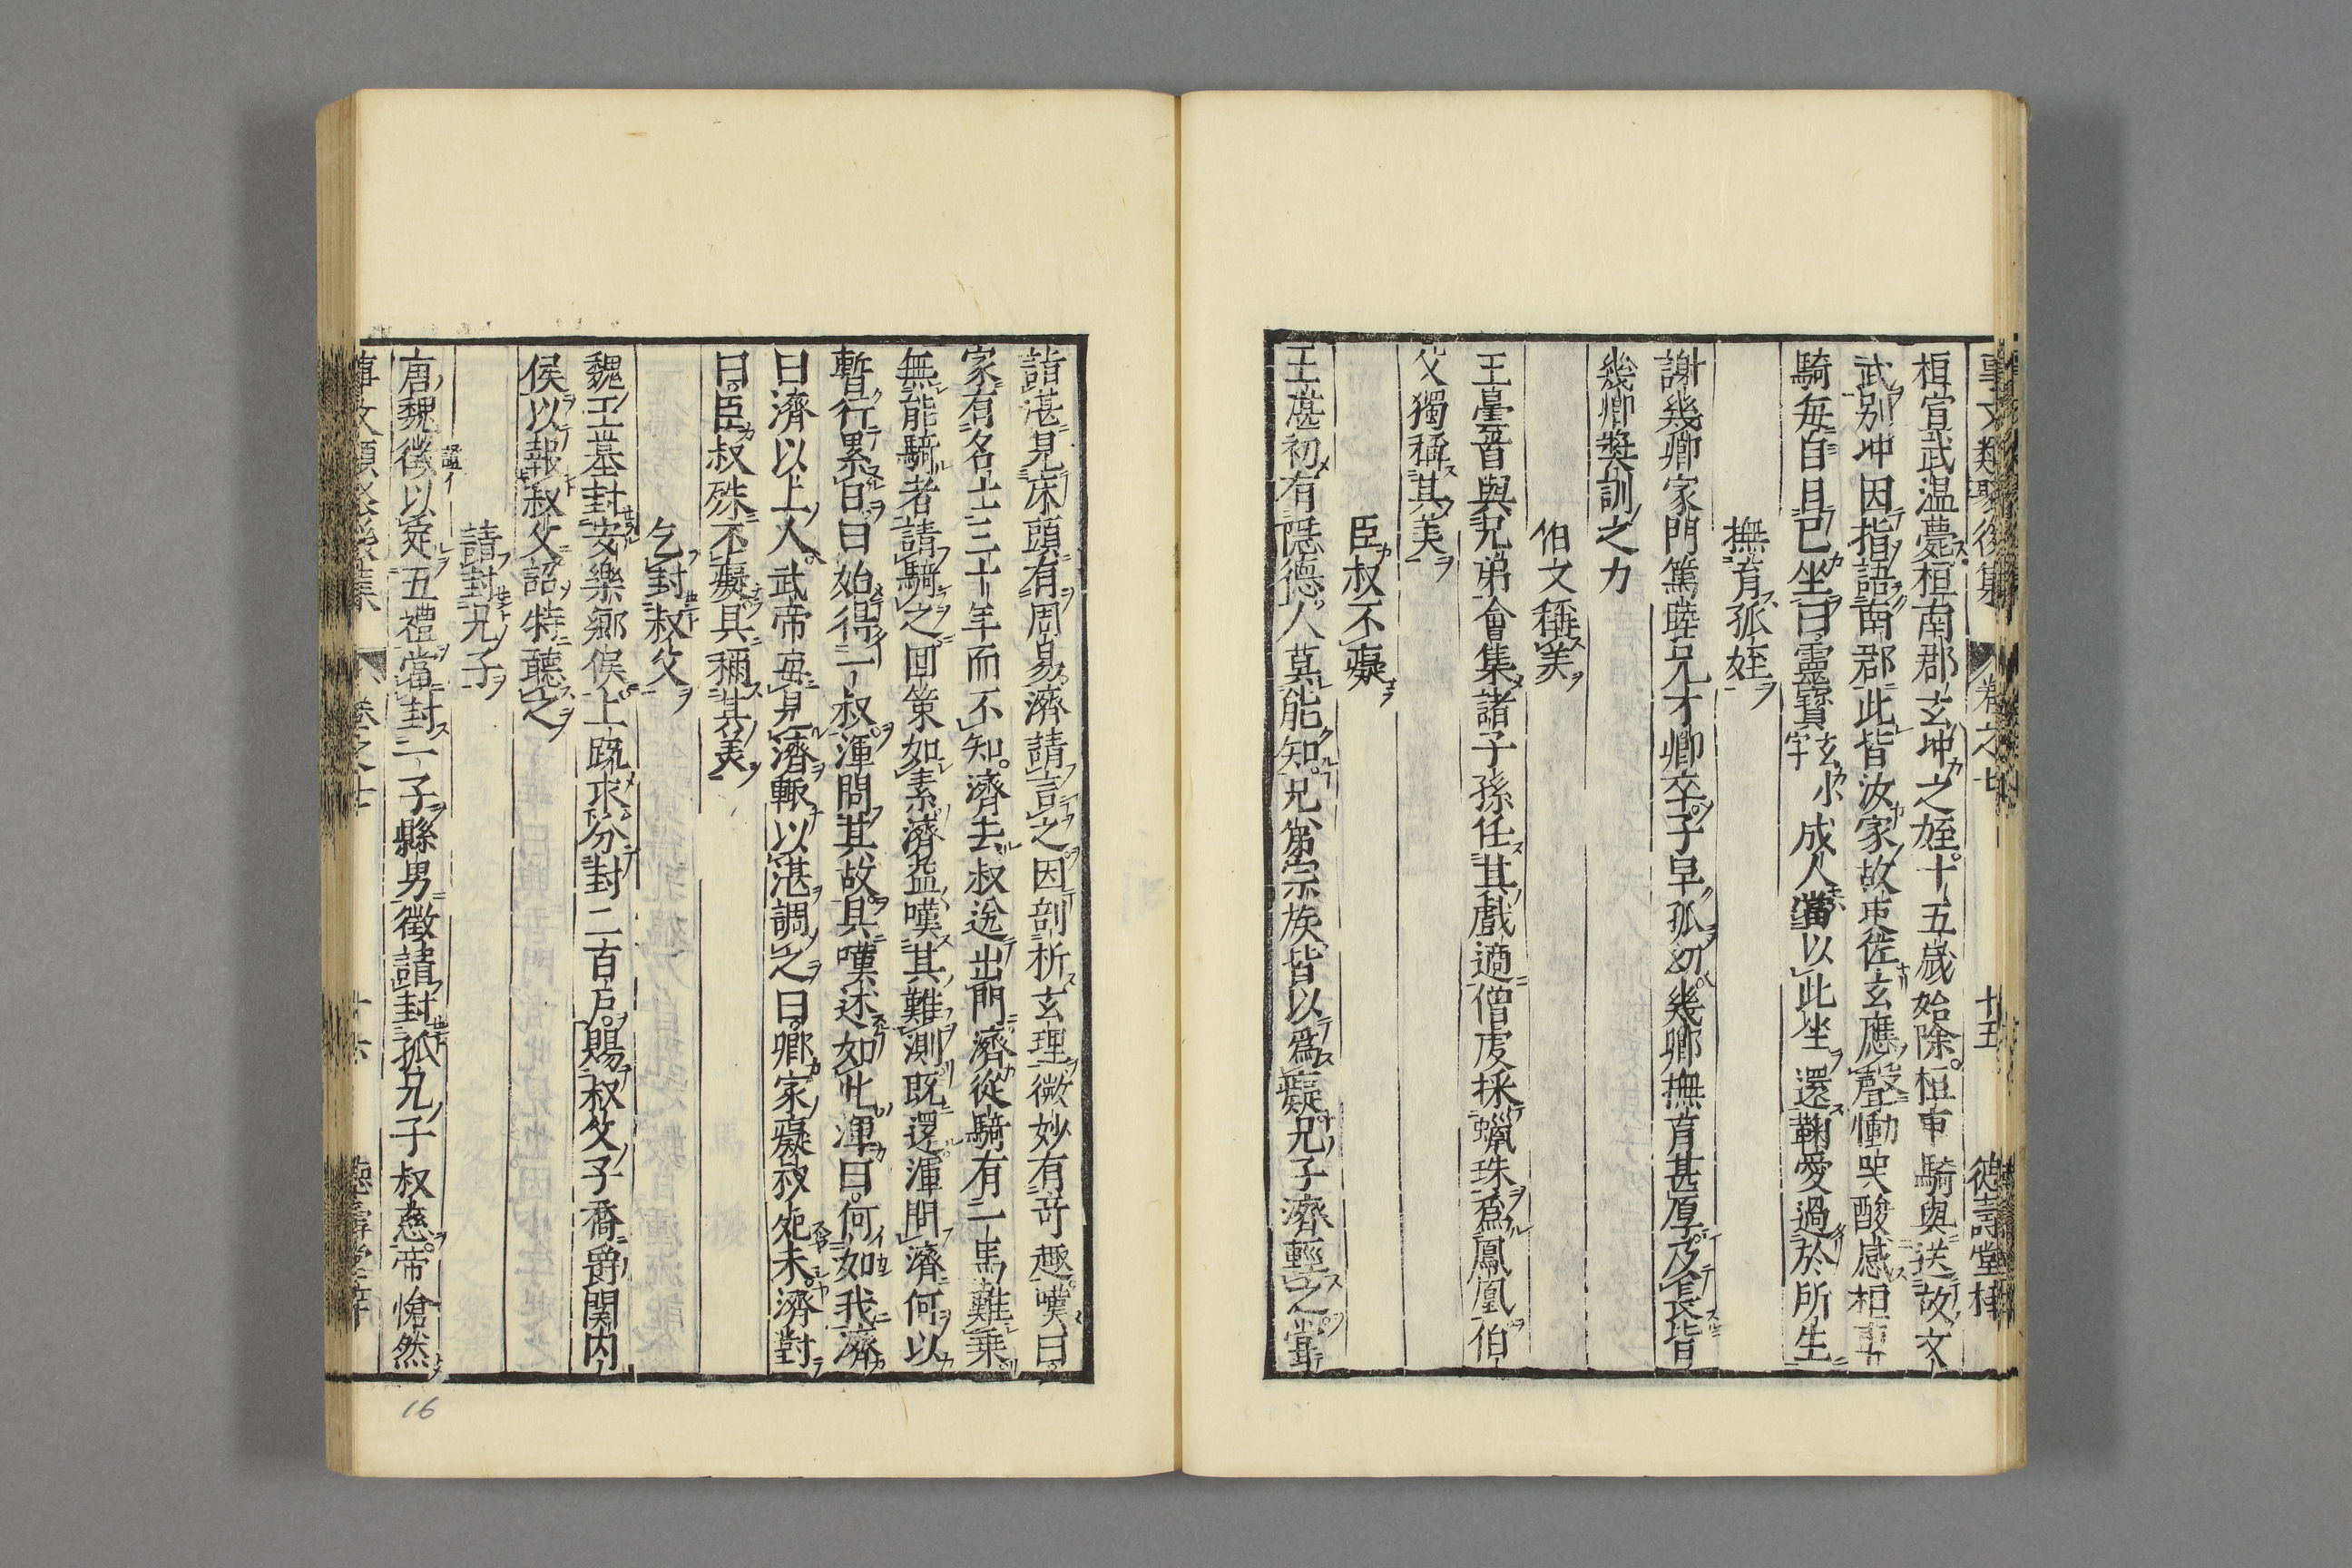 事文類聚後集 卷之七 十五 德壽堂梓
桓宣武温薨桓南郡玄冲之姪十五歳始除桓車騎與送故文
武別冲因指語南郡此皆汝家故吏佐玄應聲慟哭酸感桓車
騎每自目已坐曰靈寶玄小字成人當以此坐還鞠愛過於所生
撫育孤姪
謝幾卿家門篤睦兄才卿卒子早孤幼幾卿撫育甚厚及長皆
幾卿奬訓之力
伯文稱美
王曇首與兄弟會集諸子孫任其戲適僧虔採蠟珠爲鳳凰伯
父獨稱其美
臣叔不癡
王湛初有隱德人莫能知兄弟宗族皆以爲癡兄子濟輕之嘗
詣湛見床頭有周易濟請言之因剖析玄理微妙有奇趣嘆曰
家有名士三十年而不知濟去叔送出門濟從騎有一馬難乗
無能騎者請騎之回策如素濟益嘆其難測既還渾問濟何以
暫行累日曰始得一叔渾問其故具嘆述如此渾曰何如我濟
曰濟以上人武帝每見濟輙以湛調之曰卿家癡叔死未濟對
曰臣叔殊不癡具稱其美
乞封叔父
魏王基封安樂鄉侯上䟽求分封二百户賜叔父子喬爵関内
侯以報叔父詔特聽之
請封兄子
唐魏徵以定五禮當封一子縣男徵請封孤兄子叔慈帝愴然
事文類聚後集 卷之七 十六 德壽堂梓
16